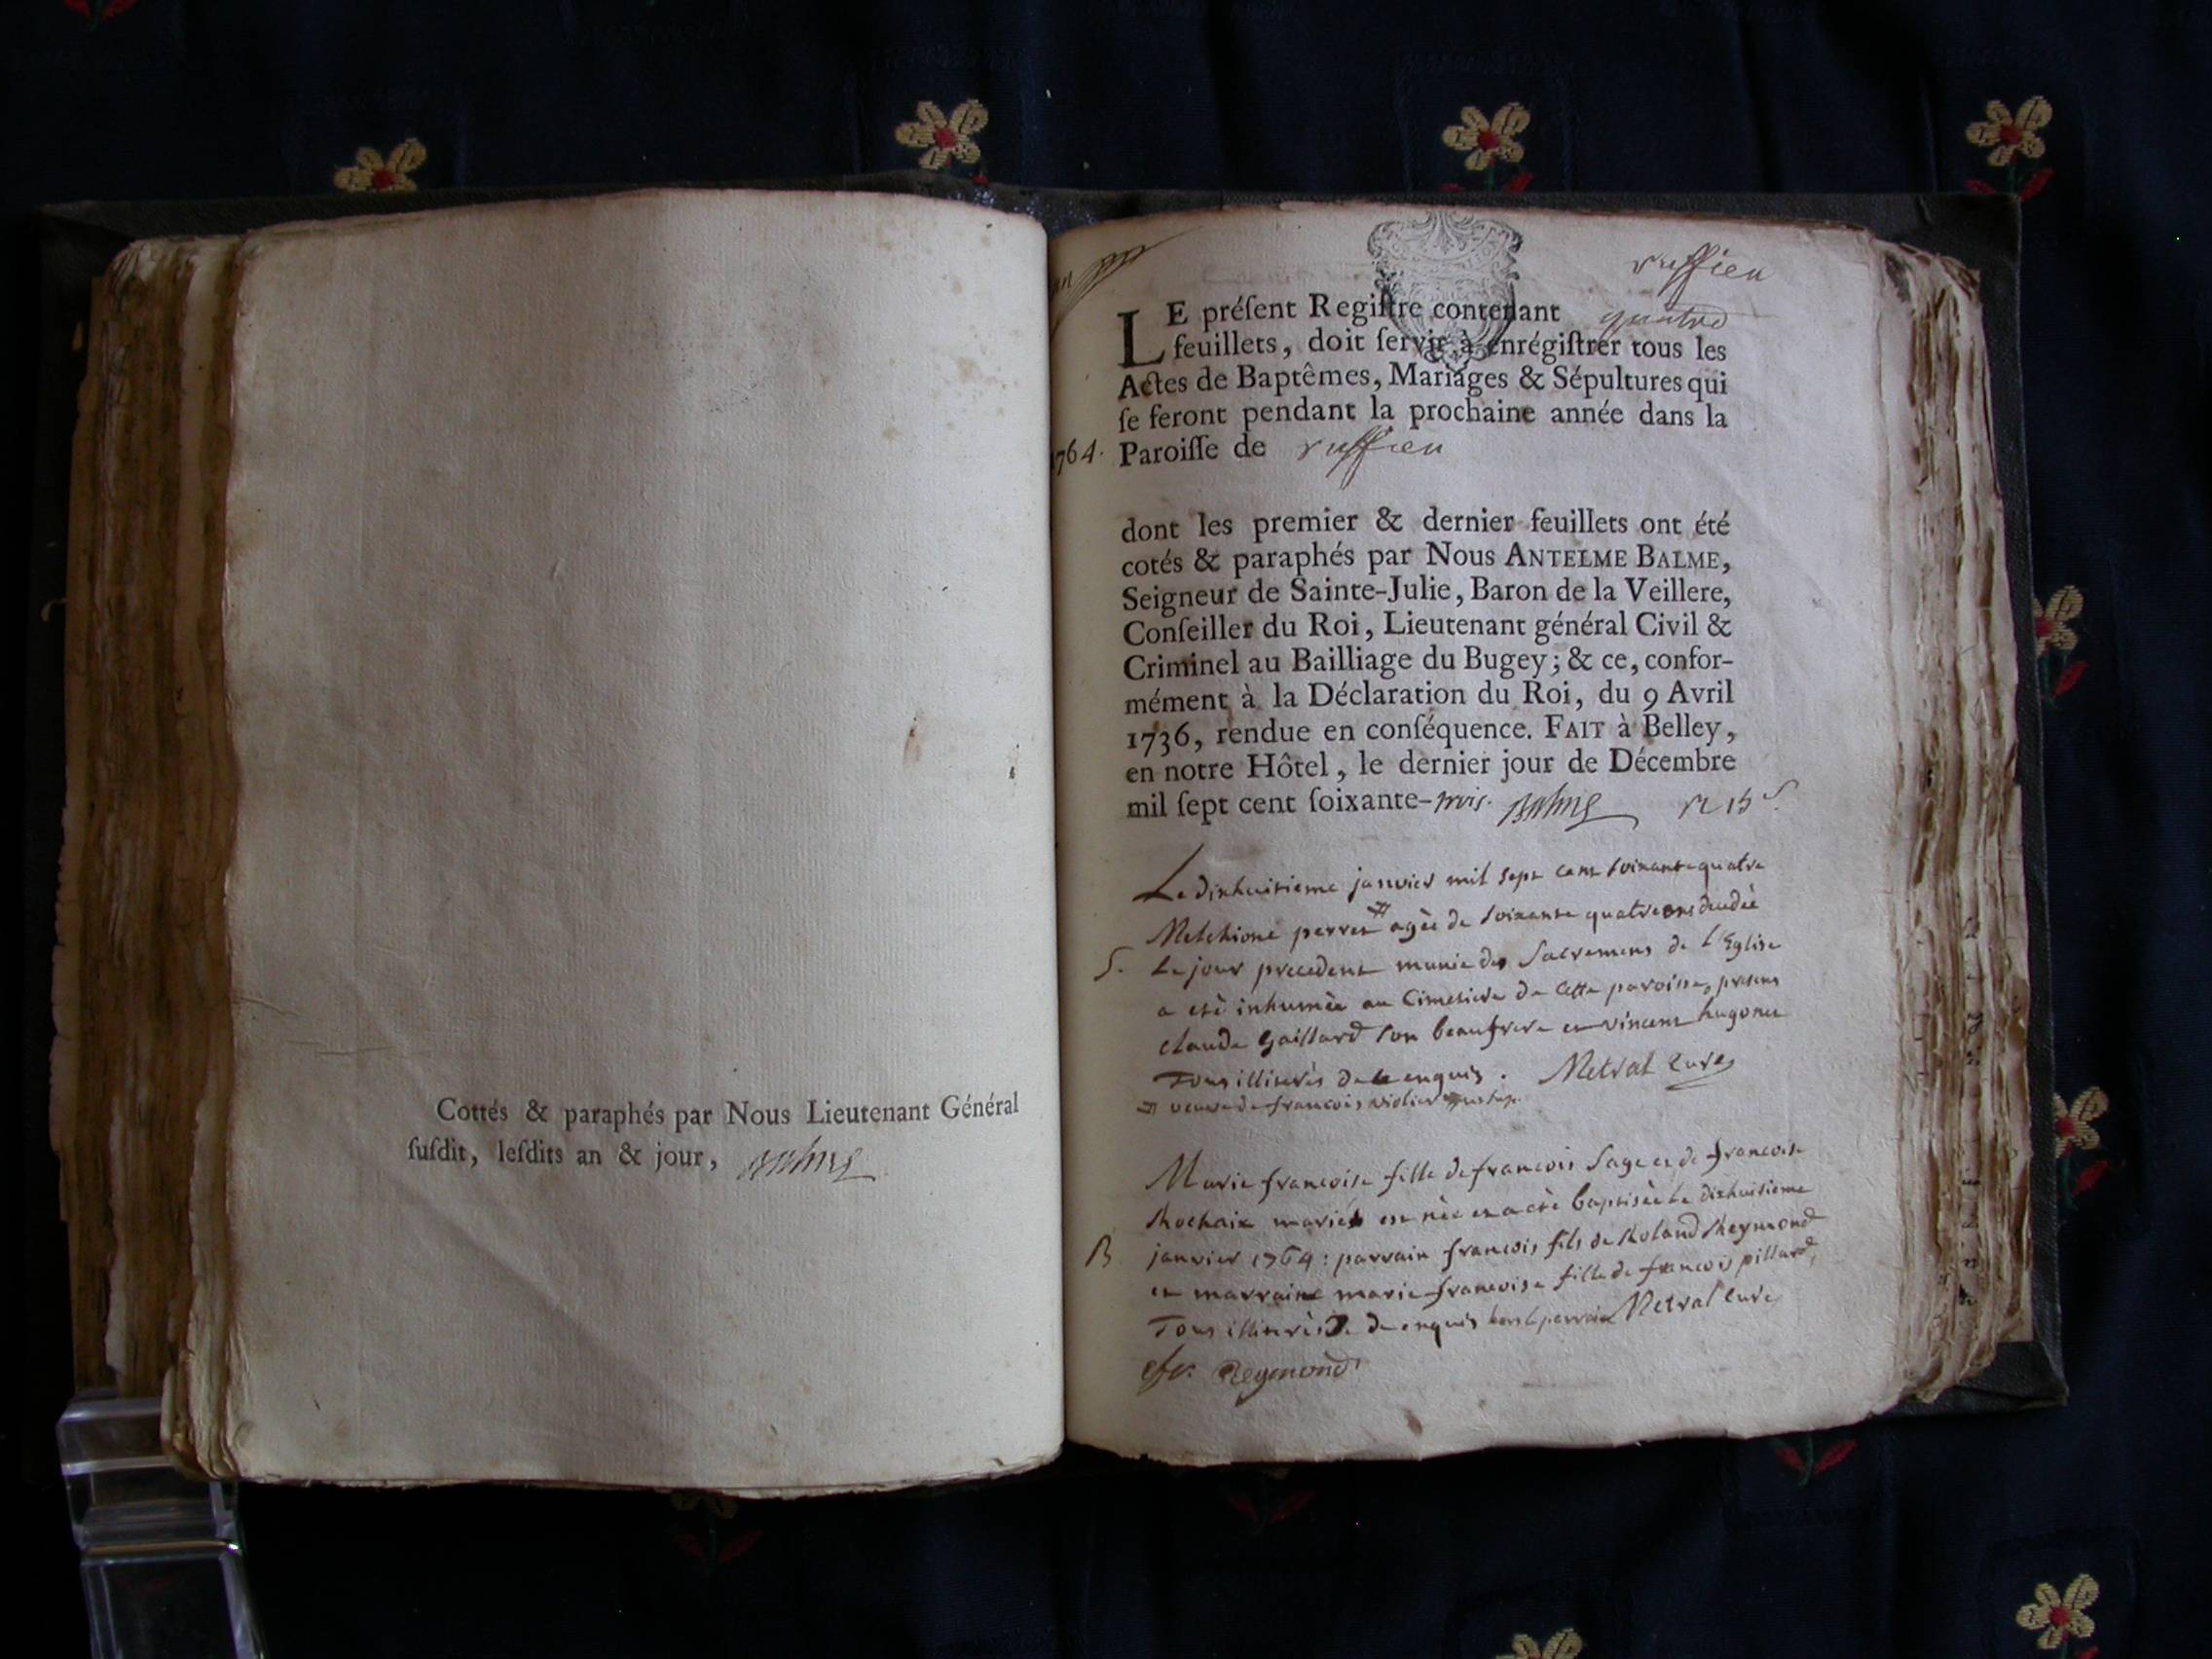 Cottés & paraphés par Nous Lieutenant Général
ſuſdit, leſdits an & jour, Balme
ruffieu
LE préſent Regiſtre contenant quatre
feuillets, doit ſervir à enrégiſtrer tous les
Actes de Baptêmes, Mariages & Sépultures qui
ſe feront pendant la prochaine année dans la
1764. Paroiſſe de ruffieu
dont les premier & dernier feuillets ont été
cotés & paraphés par Nous ANTELME BALME,
Seigneur de Sainte-Julie, Baron de la Veillere,
Conſeiller du Roi, Lieutenant général Civil &
Criminel au Bailliage du Bugey; & ce, confor-
mément à la Déclaration du Roi, du 9 Avril
1736, rendue en conſéquence. FAIT à Belley,
en notre Hôtel, le dernier jour de Décembre
mil ſept cent ſoixante-trois. Balme
Le dixhuitieme janvier mil sept cent soixante quatre
Melchione perret # agèe de soixante quatre ans decedèe
S. Le jour precedent munie des Sacremens de l'Eglise
a etè inhumèe au Cimetiere de cette paroisse, presens
claude Gaillard son beaufrere et vincent hugonet
Tous illiterès de ce enquis. Metral Curé
# veuve de francois violier
Marie francoise fille de francois Sage et de francoise
Rochaix mariés est nèe et a etè baptisèe Le dixhuitieme
B janvier 1764: parrain francois fils de Roland Reymond
et marraine marie francoise fille de francois pillard,
Tous illiterès de ce enquis hors le parrain Metral Curé
fr. Reymond